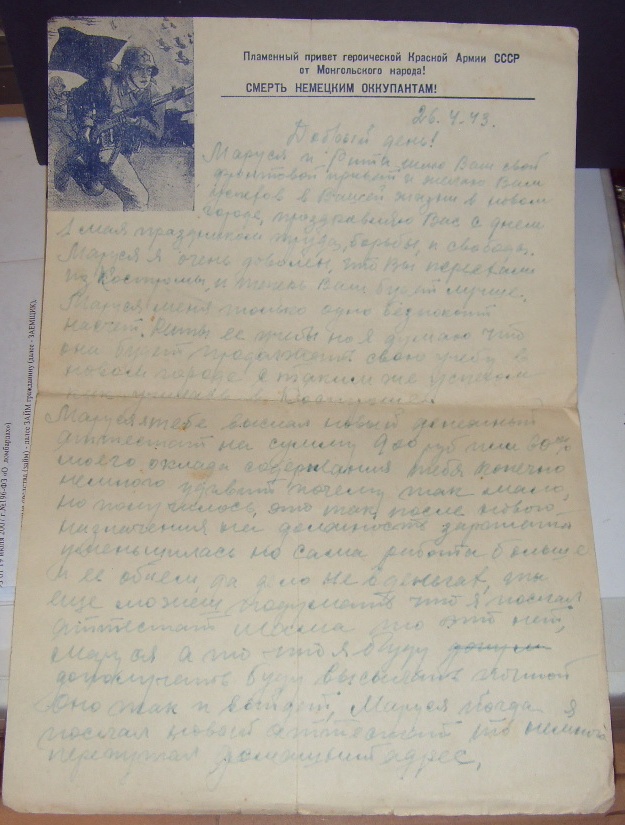 Пламенный привет героической Красной Армии СССР
от Монгольского народа!
СМЕРТЬ НЕМЕЦКИМ ОККУПАНТАМ!
26.4.43.
Добрый день!
Маруся и Рита, шлю Вам свой
привет и желаю Вам
успехов в Вашей жизни в новом
городе, поздравляю Вас с днем
1 мая праздником труда, борьбы, и свободы.
Маруся я очень доволен, что Вы переехали
из Костромы, и теперь Вам будет лучше.
Маруся меня только одно беспокоит
насчет Риты ее учебы но я думаю что
она будет продолжать свою учебу в
новом городе с таким же успехом
как училась в Костроме.
Маруся тебе выслал новый денежный
аттестат на сумму 900 руб или
моего оклада содержания тебя конечно
немного удивит почему так мало,
но получилось, это так, после нового
назначения на должность зарплата
уменьшилась но сама работа больше
и ее объем, да дело не в деньгах, ты
еще можешь подумать что я послал
аттестат мама но это нет,
Маруся а то что я буду
дополучать буду высылать почтой
оно так и выйдет, Маруся когда я
послал новый аттестат то немного
перепутал домашний адрес,
от 19 июля 2007 г. №196-ФЗ «О ломбардах»)
(займ) - далее ЗАЙМ гражданину (далее - ЗАЕМЩИК),